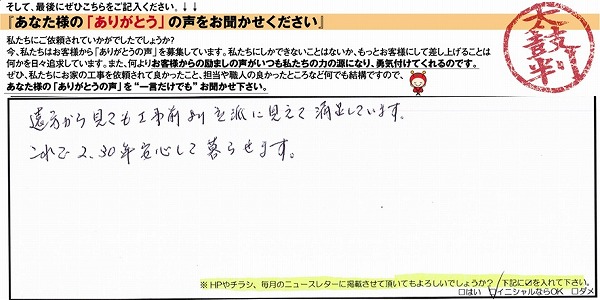 そして、最後にぜひこちらをご記入ください。↓↓
『あなた様の「ありがとう」の声をお聞かせください』
私たちにご依頼されていかがでしたでしょうか?
今、私たちはお客様から「ありがとうの声」を募集しています。私たちにしかできないことはないか、もっとお客様にして差し上げることは
何かを日々追求しています。また、何よりお客様からの励ましの声がいつも私たちの力の源になり、勇気付けてくれるのです。
ぜひ、私たちにお家の工事を依頼されて良かったこと、担当や職人の良かったところなど何でも結構ですので、
あなた様の「ありがとうの声」を“一言だけでも”お聞かせ下さい。
太鼓判
遠方から見ても工事前より立派に見えて満足しています。
これで2.30年安心して暮らせます。
※HPやチラシ、毎月のニュースレターに掲載させて頂いてもよろしいでしょうか?下記に☑を入れて下さい。
□はい ☑イニシャルならOK □ダメ